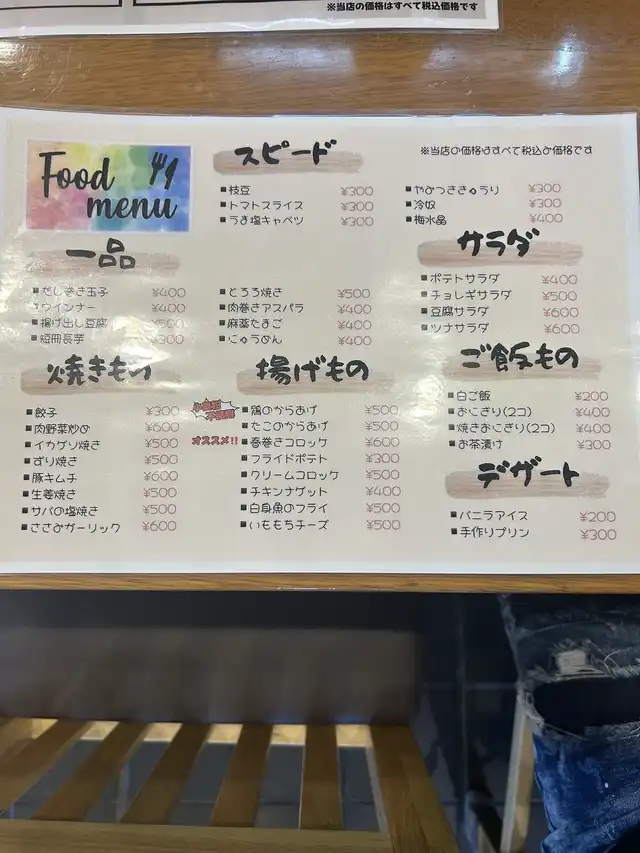 ※当店の価格はすべて税込価格です
Food menu
スピード
※当店の価格はすべて税込み価格です
■枝豆 ¥300
■トマトスライス ¥300
■うま塩キャベツ ¥300
■やみつききゅうり ¥300
■冷奴 ¥300
■梅水晶 ¥400
一品
■だし巻き玉子 ¥400
ウインナー ¥400
■揚げ出し豆腐 ¥500
■短冊長芋 ¥300
■とろろ焼き ¥500
■肉巻きアスパラ ¥400
■麻薬たまご ¥400
■にゅうめん ¥400
サラダ
■ポテトサラダ ¥400
■チョレギサラダ ¥500
■豆腐サラダ ¥600
■ツナサラダ ¥600
焼きもの
■餃子 ¥300
■肉野菜炒め ¥600
■イカゲソ焼き ¥500
■ずり焼き ¥500
■豚キムチ ¥600
■生姜焼き ¥500
■サバの塩焼き ¥500
■ささみガーリック ¥600
揚げもの
小麦粉
不使用
■鶏のからあげ ¥500
■たこのからあげ ¥500
オススメ!!
■春巻きコロッケ ¥600
■フライドポテト ¥300
■クリームコロッケ ¥500
■チキンナゲット ¥400
■白身魚のフライ ¥500
■いももちチーズ ¥500
ご飯もの
■白ご飯 ¥200
■おにぎり(2コ) ¥400
■焼きおにぎり(2コ) ¥400
■お茶漬け ¥300
デザート
■バニラアイス ¥200
■手作りプリン ¥300